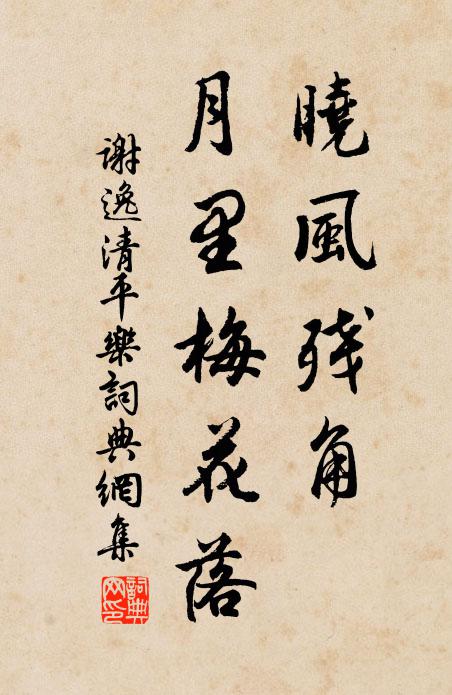 曉風残角
月里梅花落
謝逸清平樂詞典網集
詞典网印